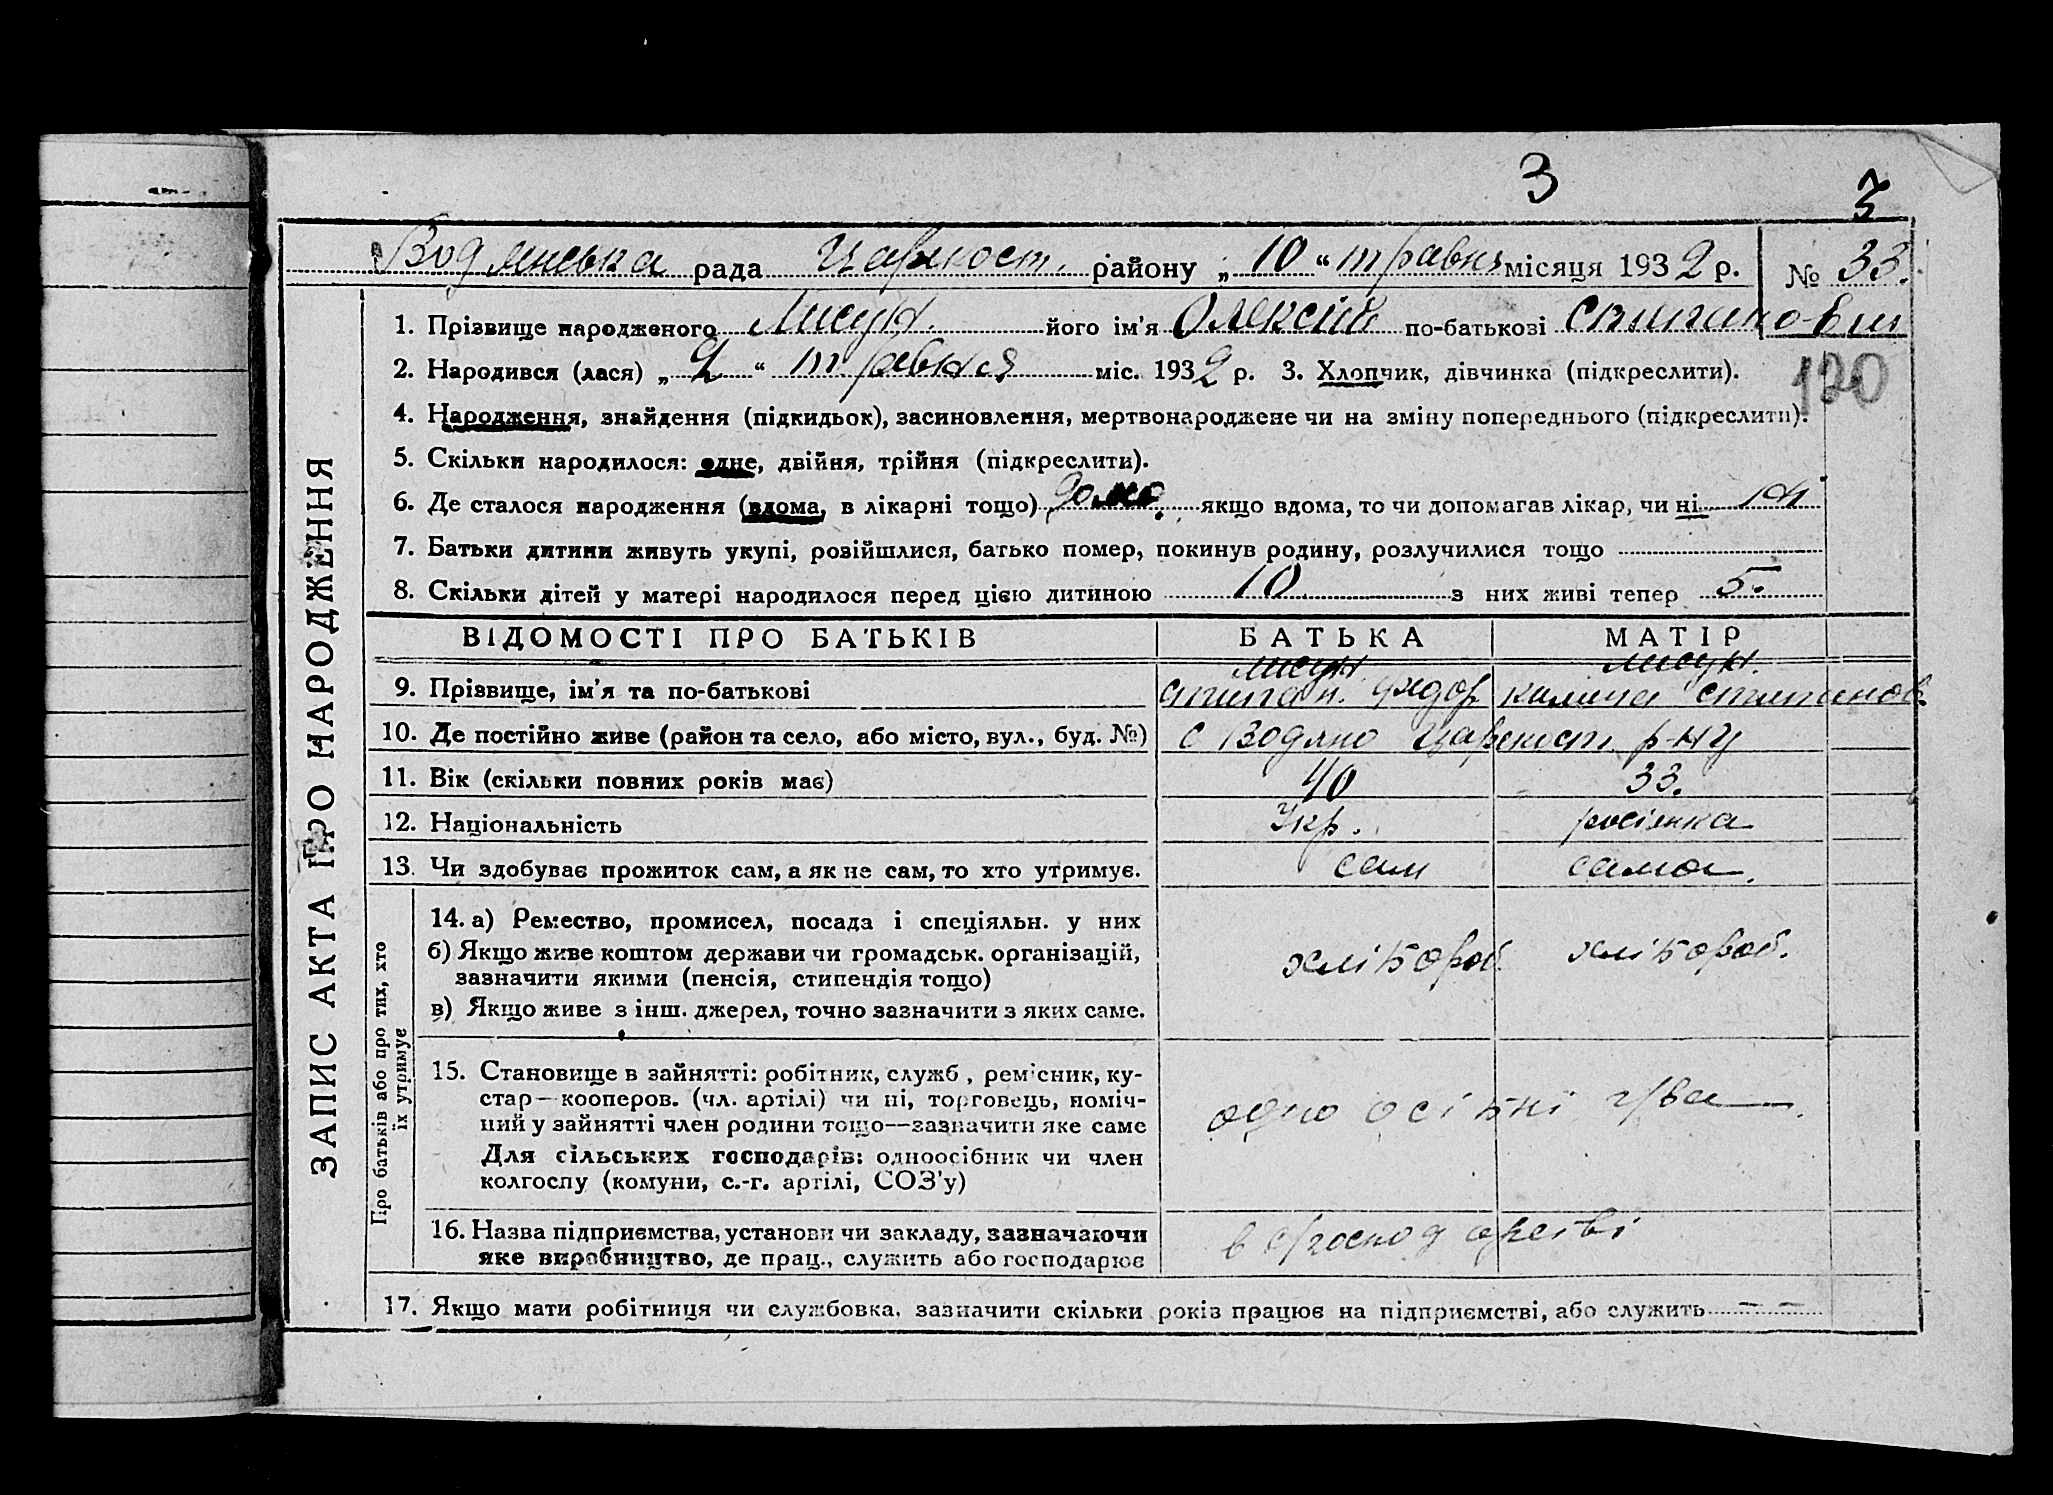 3
3
Водянська рада Царекост. району „ 10 “ травня місяця 1932 р. № 33.
1. Прізвище народженого Лисун. його ім'я Олексій по-батькові Степанович
2. Народився (лася) „ 2 “ травня міс. 1932 р. 3. Хлопчик, дівчинка (підкреслити).
120
4. Народження, знайдення (підкидьок), засиновлення, мертвонароджене чи на зміну попереднього (підкреслити).
5. Скільки народилося: одне, двійня, трійня (підкреслити).
6. Де сталося народження (вдома, в лікарні тощо) дома. якщо вдома, то чи допомагав лікар, чи ні ні
7. Батьки дитини живуть укупі, розійшлися, батько помер, покинув родину, розлучилися тощо
8. Скільки дітей у матері народилося перед цією дитиною 10 з них живі тепер 5.
ЗАПИС АКТА ПРО НАРОДЖЕННЯ
ВІДОМОСТІ ПРО БАТЬКІВ БАТЬКА МАТІР
Лисун. Лисун.
9. Прізвище, ім'я та по-батькові Степан. Федор Степанов.
10. Де постійно живе (район та село, або місто, вул., буд. №) с Водяно Царекост р-ну
11. Вік (скільки повних років має) 40 33.
12. Національність Укр. росіянка
13. Чи здобуває прожиток сам, а як не сам, то хто утримує. сам сама.
Про батьків або про тих, хто їх утримує
14. а) Ремество, промисел, посада і спеціяльн. у них
б) Якщо живе коштом держави чи громадськ. організацій,
зазначити якими (пенсія, стипендія тощо) хлібороб. хлібороб.
в) Якщо живе з інш. джерел, точно зазначити з яких саме.
15. Становище в зайнятті: робітник, служб., рем'сник, ку-
стар—кооперов. (чл. артілі) чи ні, торговець, поміч-
ний у зайнятті член родини тощо—зазначити яке саме одноосібні
Для сільських господарів: одноосібник чи член
колгоспу (комуни, с.-г. артілі, СОЗ'у)
16. Назва підприємства, установи чи закладу, зазначаючи
яке виробництво, де прац., служить або господарює в с/господарстві
17. Якщо мати робітниця чи службовка, зазначити скільки років працює на підприємстві, або служить — —